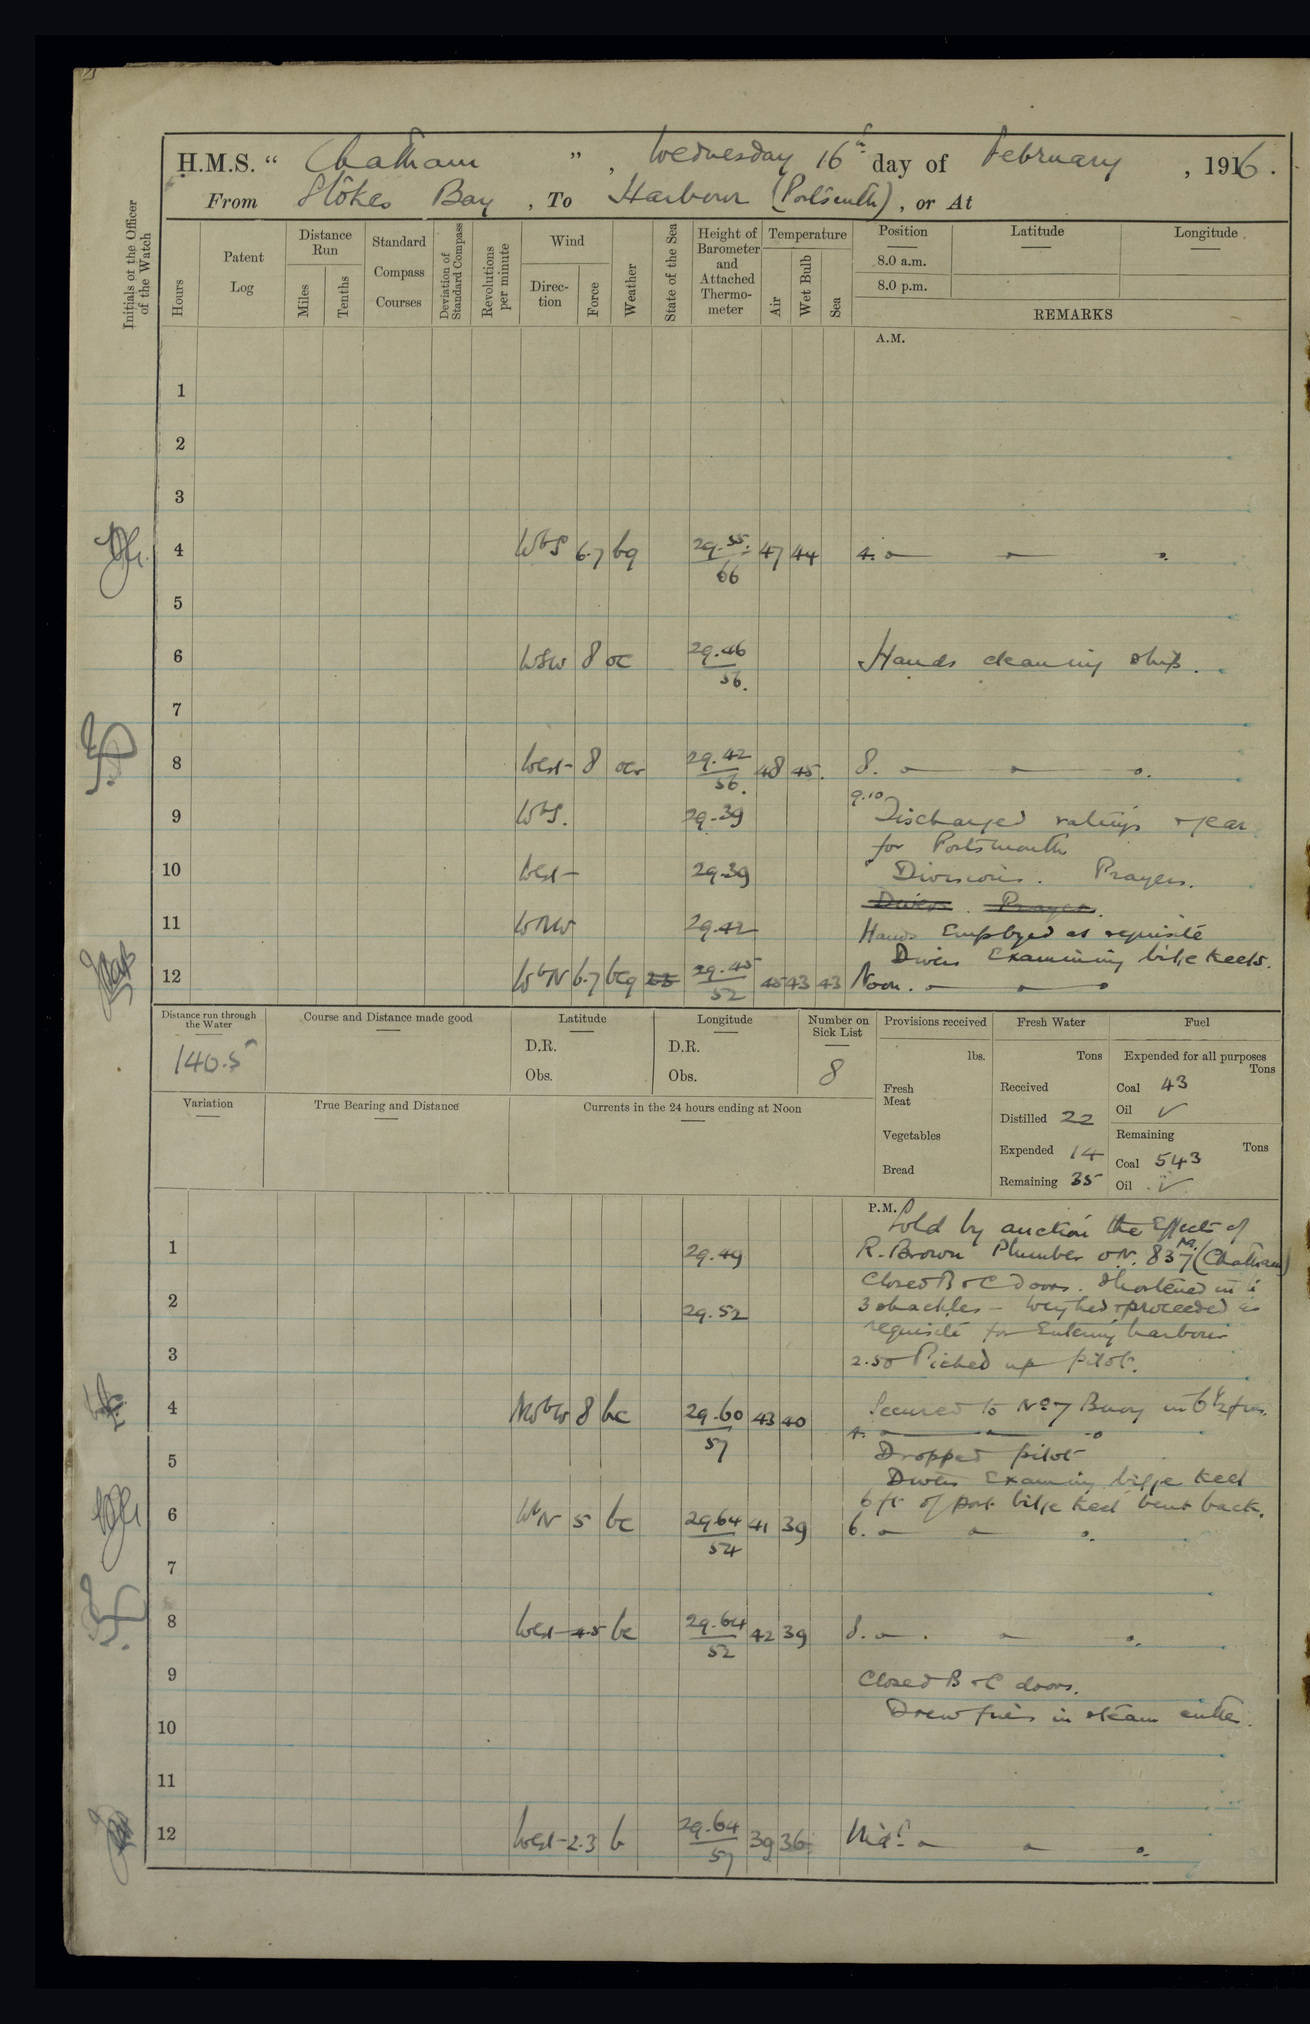 H.M.S. “ Chatham ” , Wednesday 16th day of February , 1916.
From Stokes Bay , To Harbour (Portsmth) , or At
Initials of the Officer of the Watch
Hours
Patent Log
Distance Run
Miles
Tenths
Standard Compass Courses
Deviation of Standard Compass
Revolutions per minute
Wind
Direction
Force
Weather
State of the Sea
Height of Barometer and Attached Thermometer
Temperature
Air
Wet Bulb
Sea
Position
8.0 a.m.
8.0 p.m.
Latitude
Longitude
REMARKS
A.M.
1
2
3
4 WbS 6.7 bq 29.55 66 47 44 4.
5
6 WSW 8 oc 29.46 56. Hands cleaning ship.
7
8 West 8 ocr 29.42 56. 48 45. 8.
9.10
9 WbS. 29.39 Discharged ratings + gear
for Portsmouth
10 West 29.39 Divisions. Prayers.
Divisns. Prayers.
11 WNW 29.42 Hands Employed as requisite
Divers Examining bilge keels.
12 WbN 6.7 bcq 23 29.45 52 45 43 43 Noon.
Distance run through the Water
140.5
Course and Distance made good
Latitude
D.R.
Obs.
Longitude
D.R.
Obs.
Number on Sick List
8
Provisions received
lbs.
Fresh Meat
Vegetables
Bread
Fresh Water
Tons
Received
Distilled 22
Expended 14
Remaining 35
Fuel
Expended for all purposes
Tons
Coal 43
Oil ✓
Remaining
Tons
Coal 543
Oil ✓
Variation
True Bearing and Distance
Currents in the 24 hours ending at Noon
P.M.
Sold by auction the Effects of
1 29.49 R. Brown Plumber O.N. 837 (Chatham)
Closed B & C doors. Shortened in to
2 29.52 3 shackles - weighed + proceeded as
requisite for Entering harbour
3 2.50 Picked up pilot.
4 NWbW 8 bc 29.60 57 43 40 Secured to No 7 Buoy in 6½ fms.
4.
5 Dropped pilot
Divers Examing bilge keel
6 ft of port bilge keel bent back.
6 WbN 5 bc 29.64 54 41 39 6.
7
8 West 4.5 bc 29.64 52 42 39 8.
9 Closed B & C doors.
Drew fires in steam cutter.
10
11
12 West 2.3 b 29.64 57 39 36 Midt.